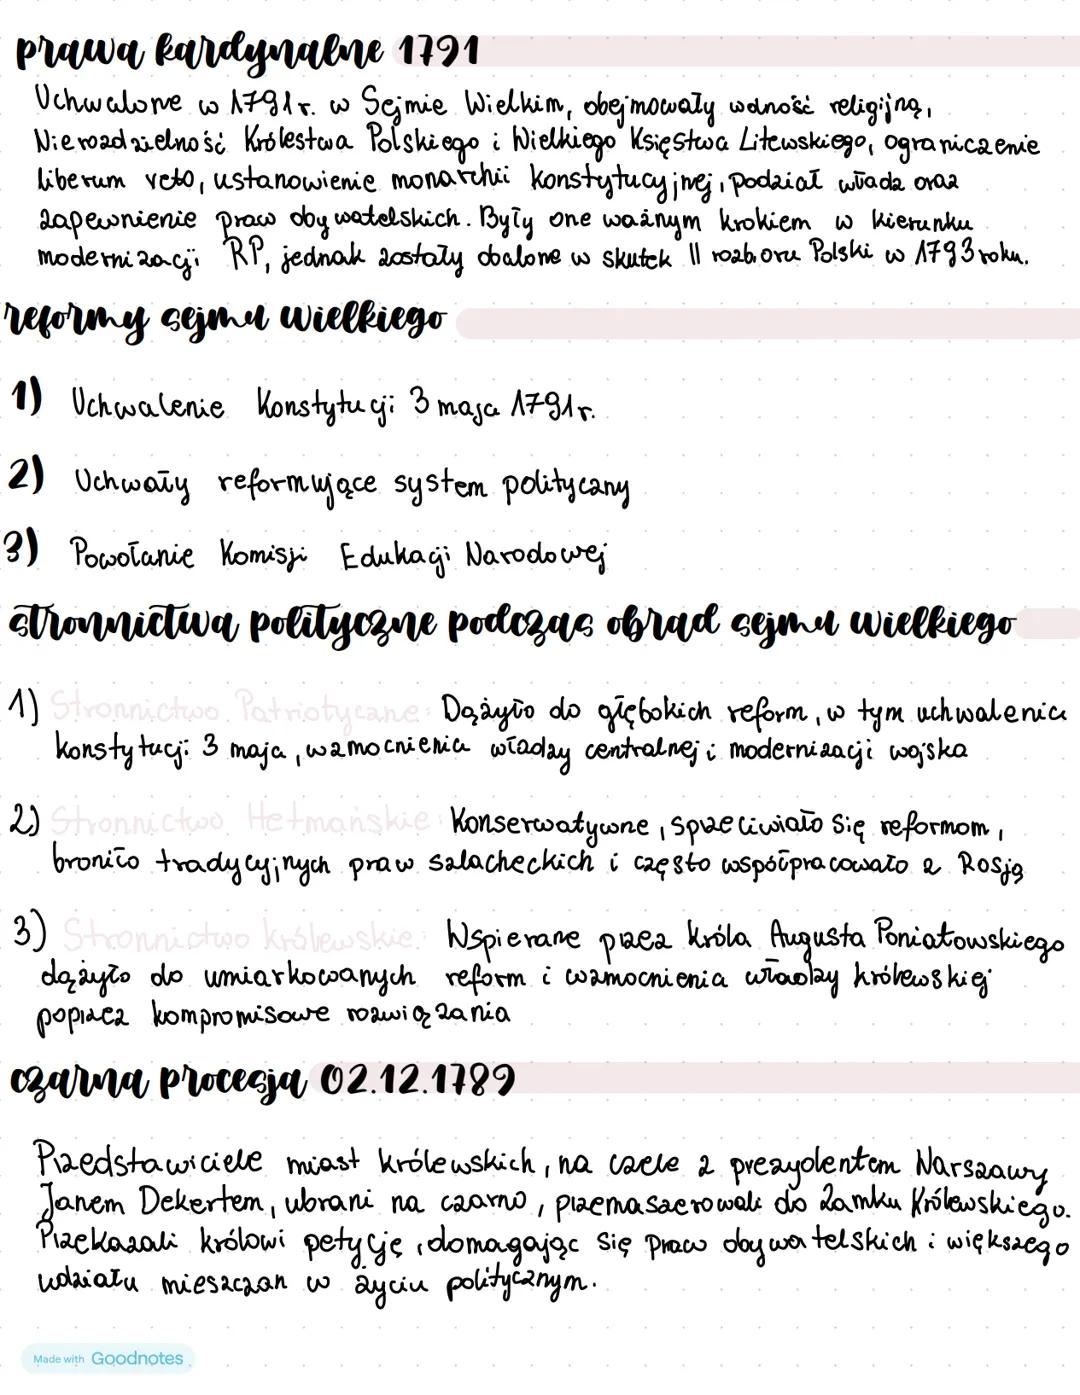 prawa kardynalne 1791
Uchwalone w 1791r. w Sejmie Wielkim, obejmowały wolność religijną,
Nierozdzielność Królestwa Polskiego i Wielkiego Księstwa Litewskiego, ograniczenie
liberum veto, ustanowienie monarchii konstytucyjnej, podział władz oraz
zapewnienie praw obywatelskich. Były one ważnym krokiem w kierunku
modernizacji RP, jednak zostały obalone w skutek II rozbioru Polski w 1793 roku.
reformy sejmu wielkiego
1) Uchwalenie Konstytucji 3 maja 1791r.
2) Uchwały reformujące system polityczny
3) Powołanie Komisji Edukacji Narodowej
stronnictwa polityczne podczas obrad sejmu wielkiego
1) Stronnictwo Patriotyczne: Dążyło do głębokich reform, w tym uchwalenia
konstytucji 3 maja, wzmocnienia władzy centralnej i modernizacji wojska
2) Stronnictwo Hetmańskie: Konserwatywne, sprzeciwiało się reformom,
broniło tradycyjnych praw szlacheckich i często współpracowało z Rosją
3) Stronnictwo królewskie: Wspierane przez króla Augusta Poniatowskiego
dążyło do umiarkowanych reform i wzmocnienia władzy królewskiej
poprzez kompromisowe rozwiązania
czarna procesja 02.12.1789
Przedstawiciele miast królewskich, na czele z prezydentem Warszawy
Janem Dekertem, ubrani na czarno, przemaszerowali do Zamku Królewskiego.
Przekazali królowi petycję, domagając się praw obywatelskich i większego
udziału mieszczan w życiu politycznym.
Made with Goodnotes